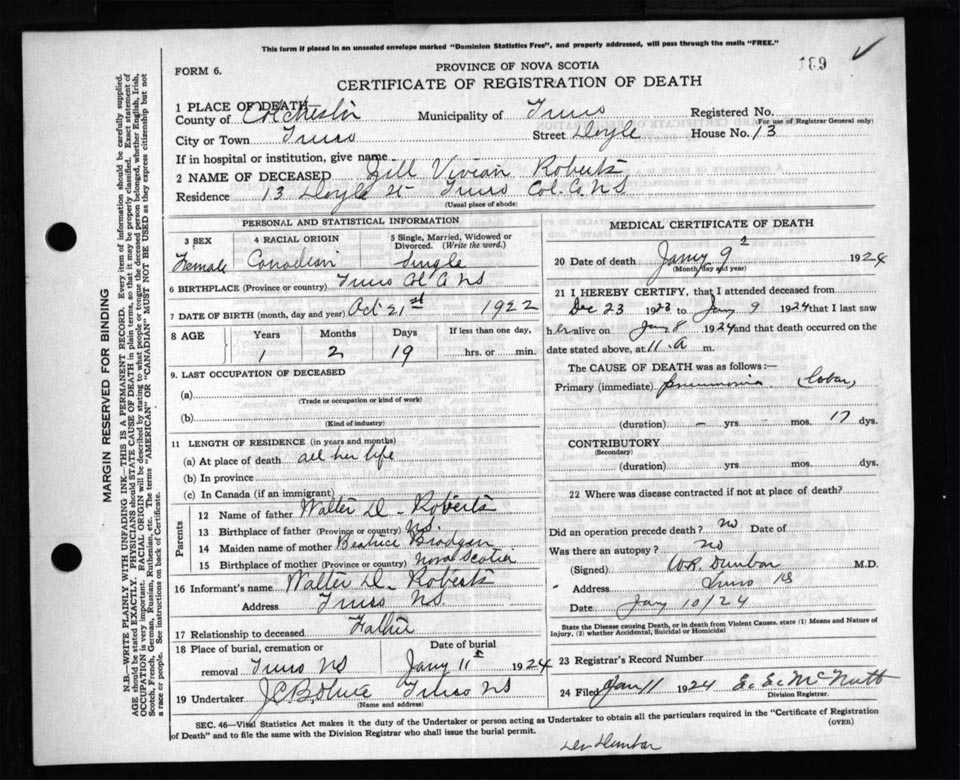 This form if placed in an unsealed envelope marked "Dominion Statistics Free", and properly addressed, will pass through the mails "FREE."
189
FORM 6.
PROVINCE OF NOVA SCOTIA
CERTIFICATE OF REGISTRATION OF DEATH
1 PLACE OF DEATH
County of Colchester Municipality of Truro Registered No.
(For use of Registrar General only)
City or Town Truro Street Doyle House No. 13
If in hospital or institution, give name
2 NAME OF DECEASED Jill Vivian Roberts
Residence 13 Doyle St Truro Col. Co NS
(Usual place of abode)
PERSONAL AND STATISTICAL INFORMATION
3 SEX 4 RACIAL ORIGIN 5 Single, Married, Widowed or Divorced. (Write the word.)
Female Canadian Single
6 BIRTHPLACE (Province or country) Truro Col Co NS
7 DATE OF BIRTH (month, day and year) Oct 21st 1922
8 AGE Years Months Days If less than one day,
1 2 19 hrs. or min.
9. LAST OCCUPATION OF DECEASED
(a)
(Trade or occupation or kind of work)
(b)
(Kind of industry)
11 LENGTH OF RESIDENCE (in years and months)
(a) At place of death all her life
(b) In province
(c) In Canada (if an immigrant)
Parents
12 Name of father Walter D - Roberts
13 Birthplace of father (Province or country) NS.
14 Maiden name of mother Beatrice
15 Birthplace of mother (Province or country) Nova Scotia
16 Informant's name Walter D. Roberts
Address Truro NS.
17 Relationship to deceased Father
18 Place of burial, cremation or removal Truro NS
Date of burial
Jany 11 1924
19 Undertaker Truro NS
(Name and address)
MEDICAL CERTIFICATE OF DEATH
20 Date of death Jany 9 1924
(Month, day and year)
21 I HEREBY CERTIFY, that I attended deceased from
Dec 23 1923 to Jany 9 1924 that I last saw
her alive on Jany 8 1924 and that death occurred on the
date stated above, at 11. a m.
The CAUSE OF DEATH was as follows:—
Primary (immediate) pneumonia Lobar
(duration) - yrs. mos. 17 dys.
CONTRIBUTORY
(Secondary)
(duration) yrs. mos. dys.
22 Where was disease contracted if not at place of death?
Did an operation precede death? no Date of
Was there an autopsy? no
(Signed) W.R. Dunbar M.D.
Address Truro NS
Date Jany 10/24
State the Disease causing Death, or in death from Violent Causes, state (1) Means and Nature of Injury, (2) whether Accidental, Suicidal or Homicidal
23 Registrar's Record Number
24 Filed Jany 11 1924 E. E. McNutt
Division Registrar.
SEC. 46—Vital Statistics Act makes it the duty of the Undertaker or person acting as Undertaker to obtain all the particulars required in the "Certificate of Registration
of Death" and to file the same with the Division Registrar who shall issue the burial permit.
(OVER)
Dr Dunbar
MARGIN RESERVED FOR BINDING
N.B.—WRITE PLAINLY WITH UNFADING INK—THIS IS A PERMANENT RECORD. Every item of information should be carefully supplied.
AGE should be stated EXACTLY. PHYSICIANS should STATE CAUSE OF DEATH in plain terms, so that it may be properly classified. Exact statement of
OCCUPATION is very important. RACIAL ORIGIN will be described by stating to what people or tongue the deceased person belonged, whether English, Irish,
Scotch, French, German, Russian, Ruthenian, etc. The terms "AMERICAN" OR "CANADIAN" MUST NOT BE USED as they express citizenship but not
a race or people. See instructions on back of Certificate.